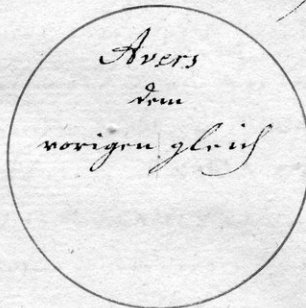 Avers
dem
vorigen gleich